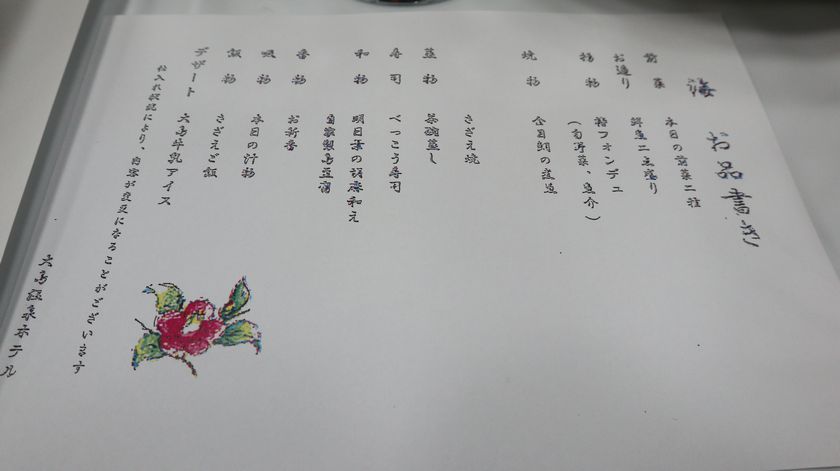 海 お品書き
前菜 本日の前菜二種
お造り 鮮魚二点盛り
揚物 椿フォンデュ
(旬野菜、魚介)
焼物 金目鯛の煮魚
さざえ焼
蒸物 茶碗蒸し
寿司 べっこう寿司
和物 明日葉の胡麻和え
自家製島豆腐
香物 お新香
吸物 本日の汁物
飯物 さざえご飯
デザート 大島牛乳アイス
仕入れ状況により、内容が変更になることがございます
大島温泉ホテル